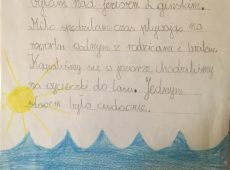 byłam nad jeziorem Łagowskim.
Miło spędzałam czas pływając na
rowerku wodnym z rodzicami i bratem.
Kąpaliśmy się w jeziorze chodziliśmy
na wycieczki do lasu. Jednym
słowem było cudownie.